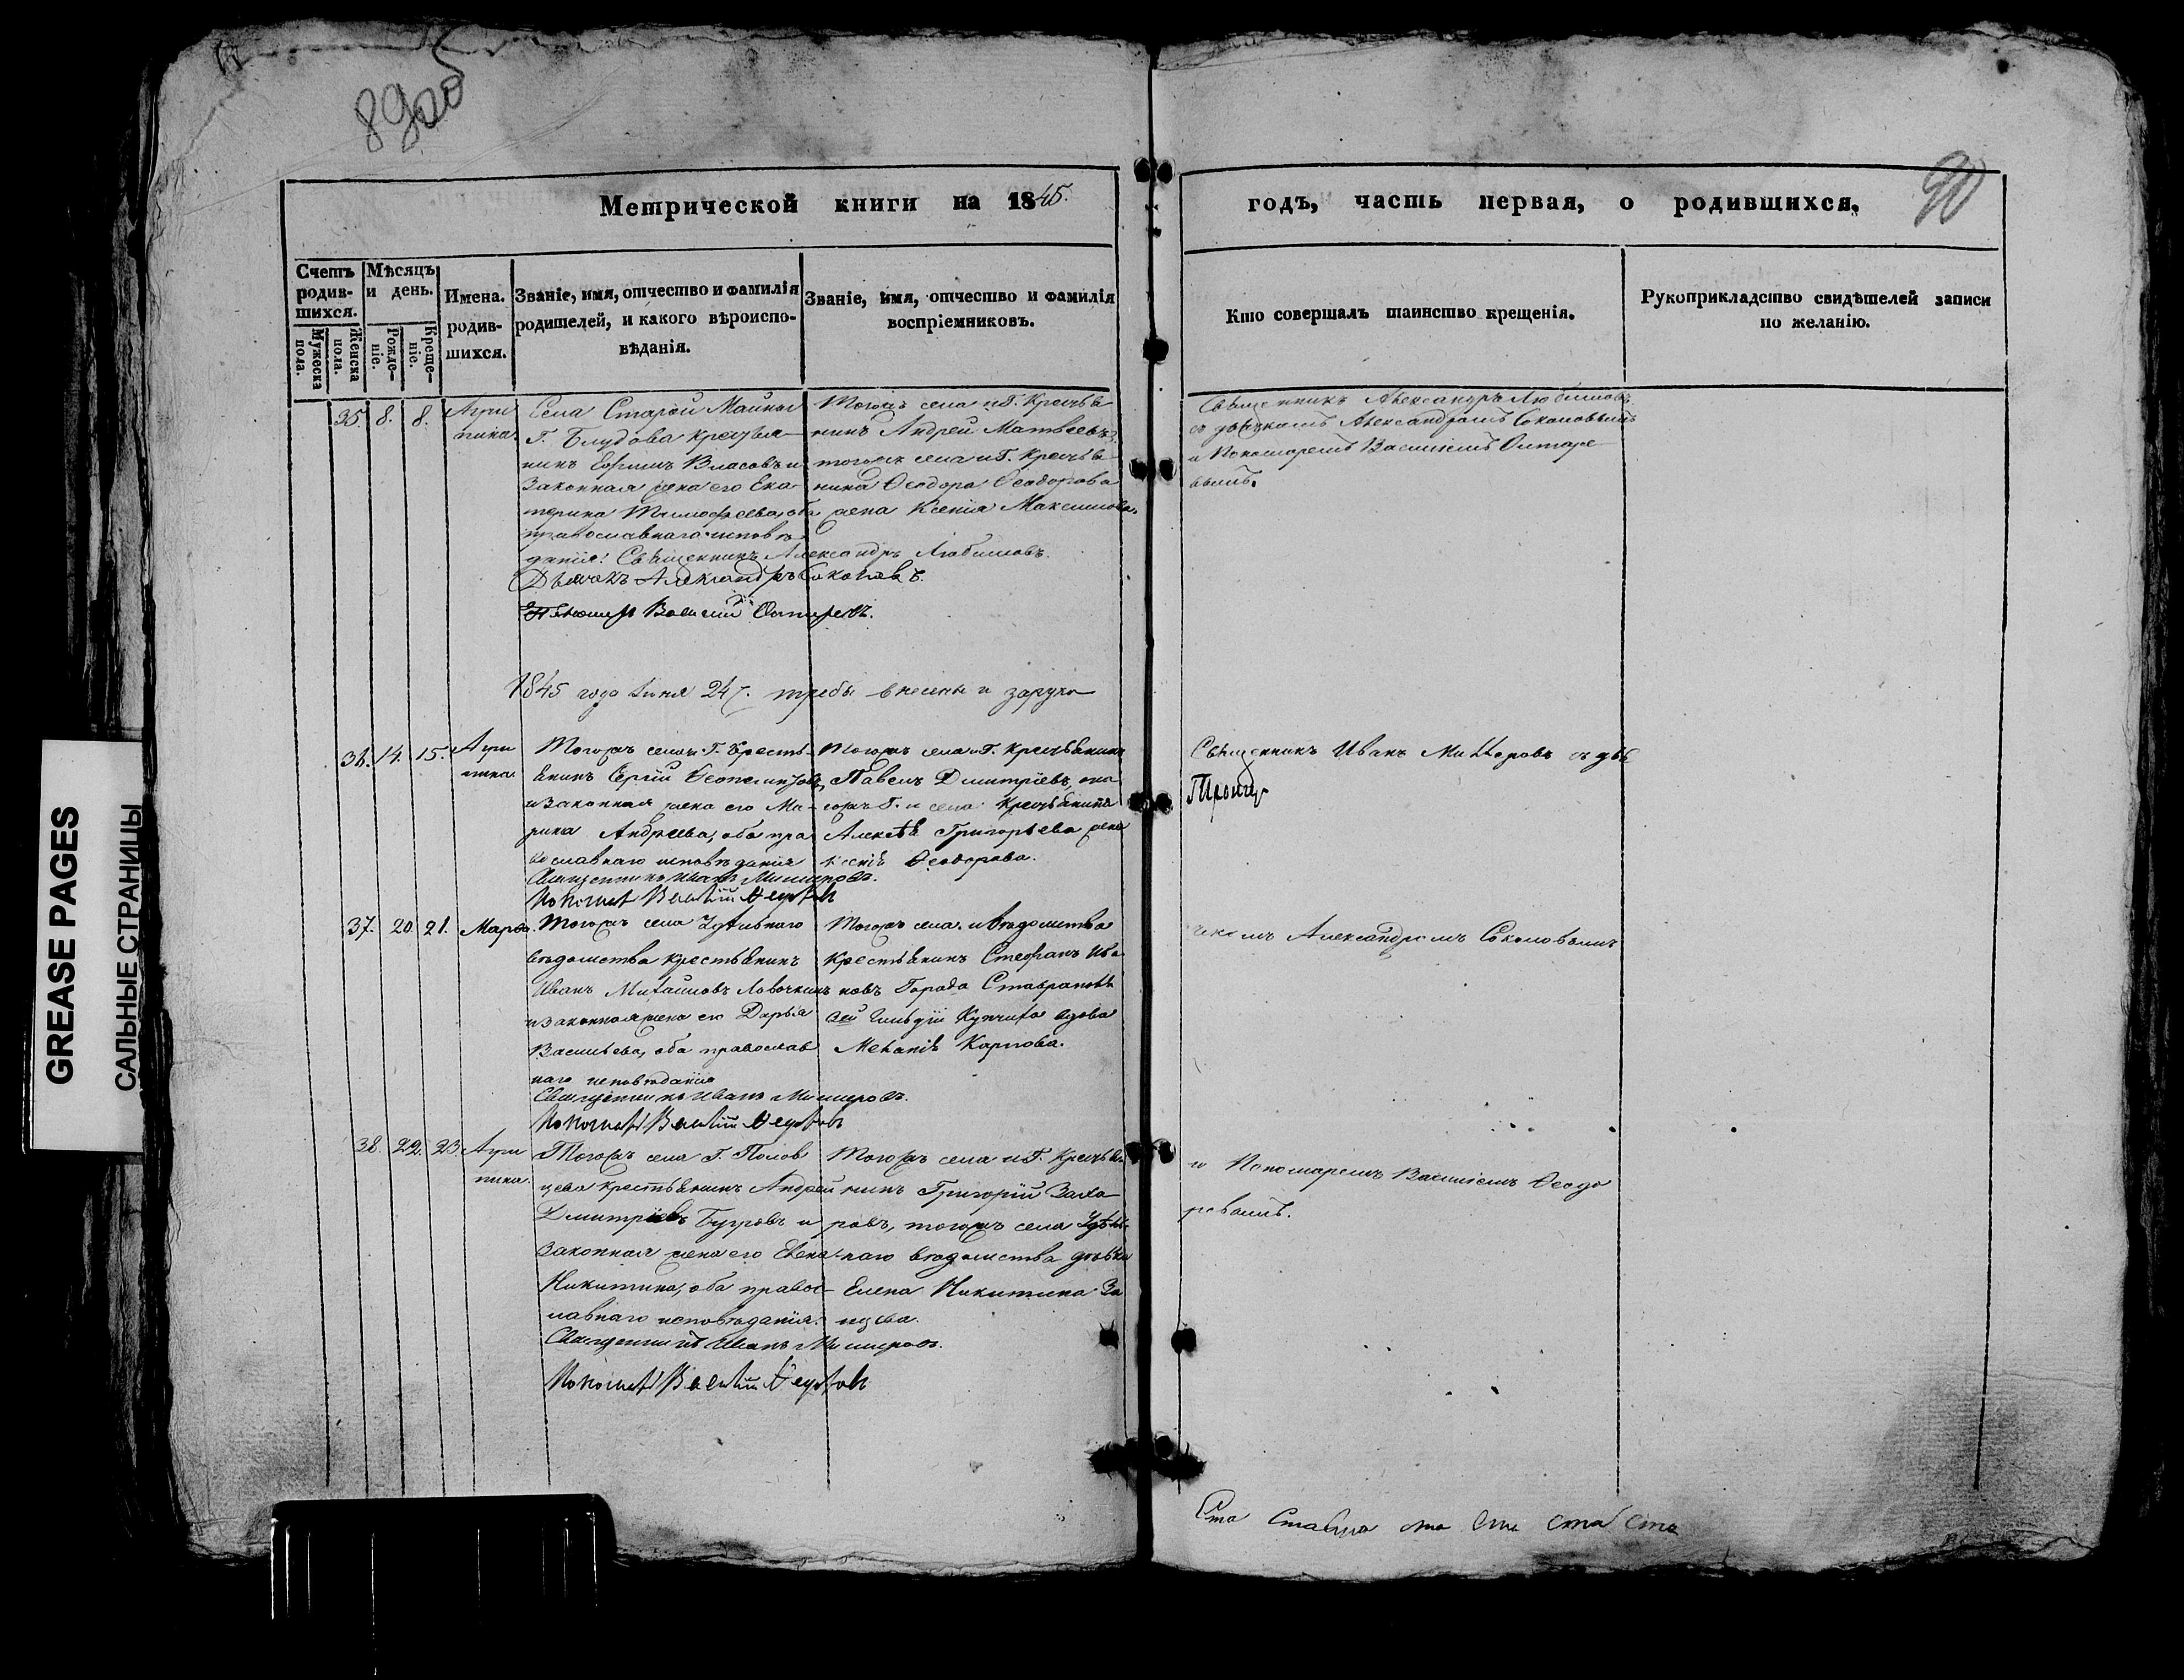 89об
90
Метрической книги на 1845.
годъ, часть первая, о родившихся.
Счетъ родив-шихся.
Мужеска пола.
Женска пола.
Мѣсяцъ и день.
Рожде-ніе.
Креще-ніе.
Имена. родив-шихся.
Званіе, имя, отчество и фамилія
родителей, и какого вѣроиспо-
вѣданія.
Званіе, имя, отчество и фамилія
воспріемниковъ.
Кто совершалъ таинство крещенія.
Рукоприкладство свидѣтелей записи
по желанію.
35. 8. 8. Агри
пина.
Села Старой Майны
Г. Блудова крестья
нинъ Ефимъ Власовъ и
законная жена его Ека-
терина Тимофеева, оба
православнаго исповѣ
данія. Священникъ Александръ Любимовъ.
Дьячокъ Александръ Соколовъ.
Василій
Тогожъ села и Г. Крестья
нинъ Андрей Матвеевъ,
тогожъ села и Г. Крестья
нина Ѳеодора Ѳеодорова
жена Ксенія Максимова.
Священникъ Александръ Любимовъ
съ дьячкомъ Александромъ Соколовымъ
и Пономаремъ Василіемъ
1845 года Іюня 24 требы внесены и заруко
36. 14. 15. Агри
пина.
Тогожъ села и Г. Кресть-
янинъ Сергій
и законная жена его Ма-
рина Андреева, оба пра
вославнаго исповѣданія
Священникъ Иванъ
Василій
Тогожъ села и Г. Крестьянинъ
Павелъ Дмитріевъ,
Г. и села Крестьянина
Алексѣя Григорьева жена
Ксенія Ѳеодорова.
Священникъ Иванъ съ дья
37. 20. 21. Марѳа.
Тогожъ села Удѣльнаго
вѣдомства крестьянинъ
Иванъ Михайловъ Лавочкинъ
и законная жена его Дарья
Васильева, оба православ
наго исповѣданія
Священникъ Иванъ
Василій
Тогожъ села и вѣдомства
Крестьянинъ Стефанъ Ива
новъ Города Ставрополя
3ей Гильдіи Купчиха вдова
Меланія Карпова.
чкомъ Александромъ Соколовымъ
38. 22. 23. Агри
пина.
Тогожъ села Г. Полов
цева крестьянинъ Андрей
Дмитріевъ Бугровъ и
законная жена его Евва
Никитина, оба правос-
лавнаго исповѣданія.
Священникъ Иванъ
Василій
Тогожъ села и Г. Крестья
нинъ Григорій Заха
ровъ, тогожъ села Удѣль-
наго вѣдомства дѣвка
Елена Никитина За
и Пономаремъ Василіемъ Ѳеодо
ровымъ.
Ста
GREASE PAGES
САЛЬНЫЕ СТРАНИЦЫ